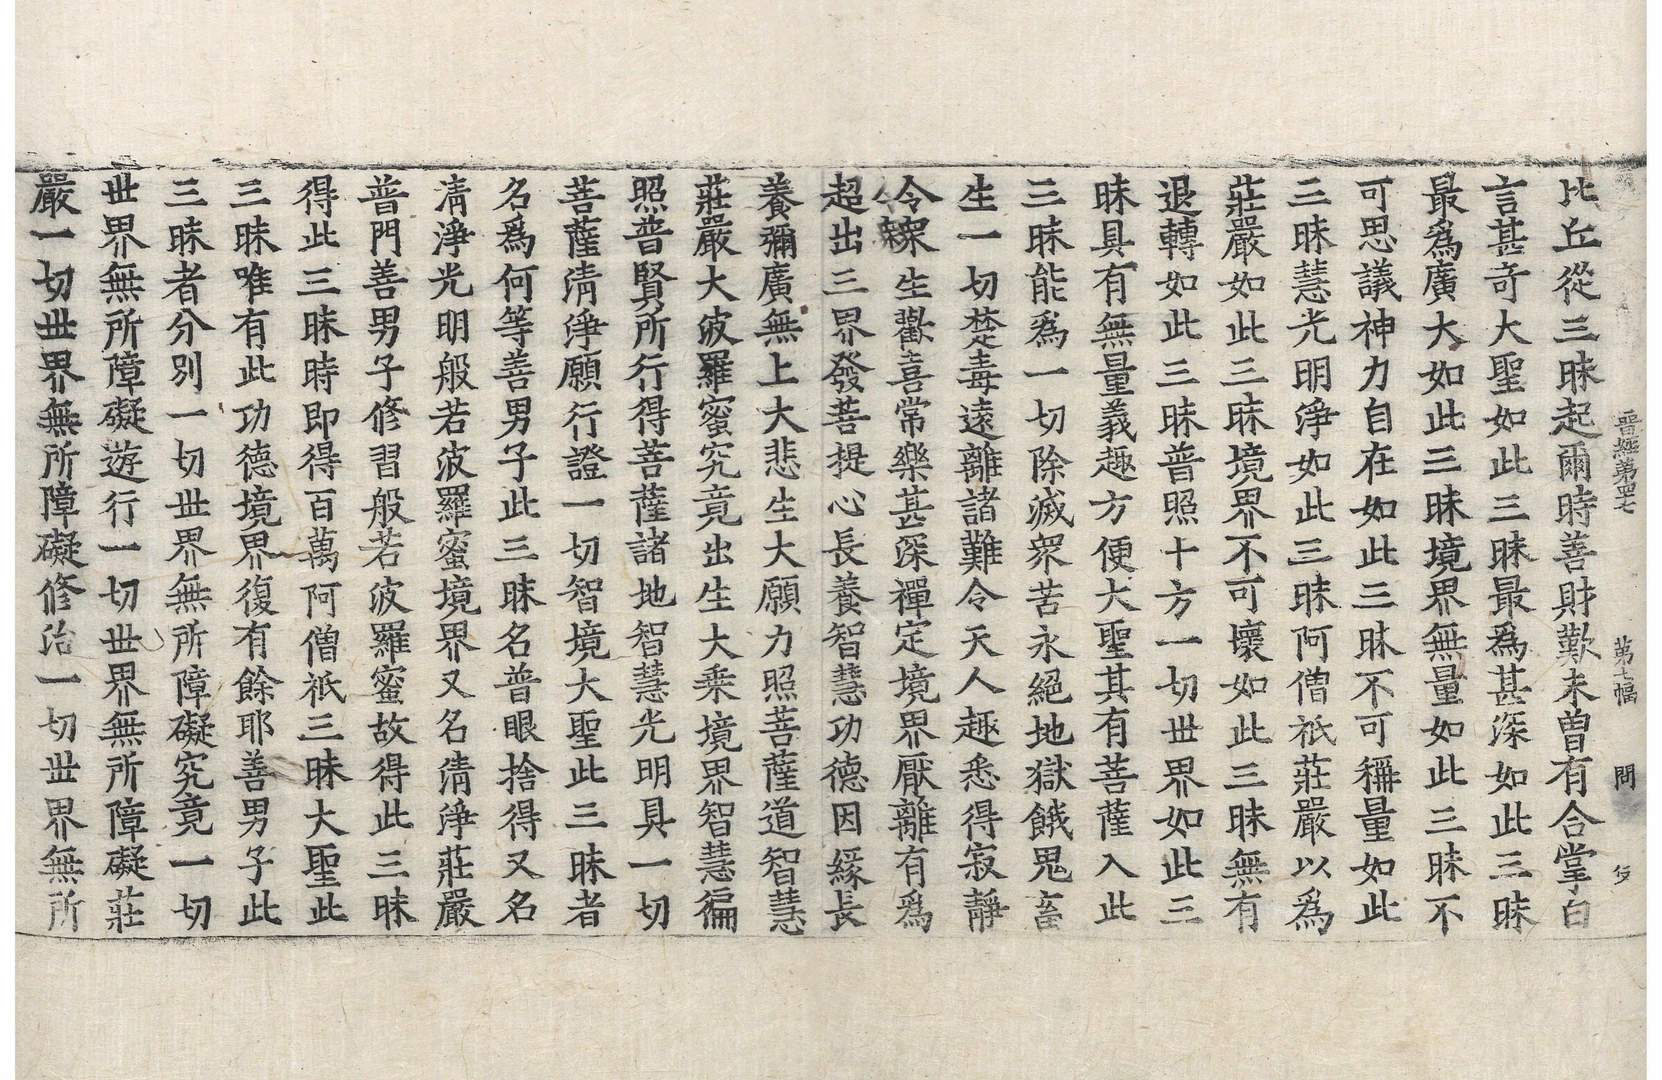 晋經第四七　第七幅　問　歹
比丘從三昧起爾時善財歎未曾有合掌白
言甚奇大聖如此三昧最爲甚深如此三昧
最爲廣大如此三昧境界無量如此三昧不
可思議神力自在如此三昧不可稱量如此
三昧慧光明淨如此三昧阿僧祇莊嚴以爲
莊嚴如此三昧境界不可壞如此三昧無有
退轉如此三昧普照十方一切世界如此三
昧具有無量義趣方便大聖其有菩薩入此
三昧能爲一切除滅衆苦永絕地獄餓鬼畜
生一切楚毒遠離諸難令天人趣悉得寂靜
令衆生歡喜常樂甚深禪定境界厭離有爲
超出三界發菩提心長養智慧功德因緣長
養彌廣無上大悲生大願力照菩薩道智慧
莊嚴大波羅蜜究竟出生大乘境界智慧徧
照普賢所行得菩薩諸地智慧光明具一切
菩薩清淨願行證一切智境大聖此三昧者
名爲何等善男子此三昧名普眼捨得又名
清淨光明般若波羅蜜境界又名清淨莊嚴
普門善男子修習般若波羅蜜故得此三昧
得此三昧時即得百萬阿僧祇三昧大聖此
三昧唯有此功德境界復有餘耶善男子此
三昧者分別一切世界無所障礙究竟一切
世界無所障礙遊行一切世界無所障礙莊
嚴一切世界無所障礙修治一切世界無所